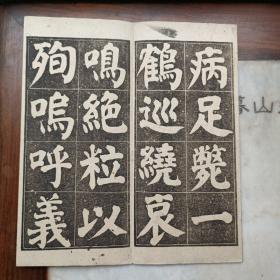 病足斃一
鶴巡繞哀
鳴絶粒以
殉嗚呼義
山